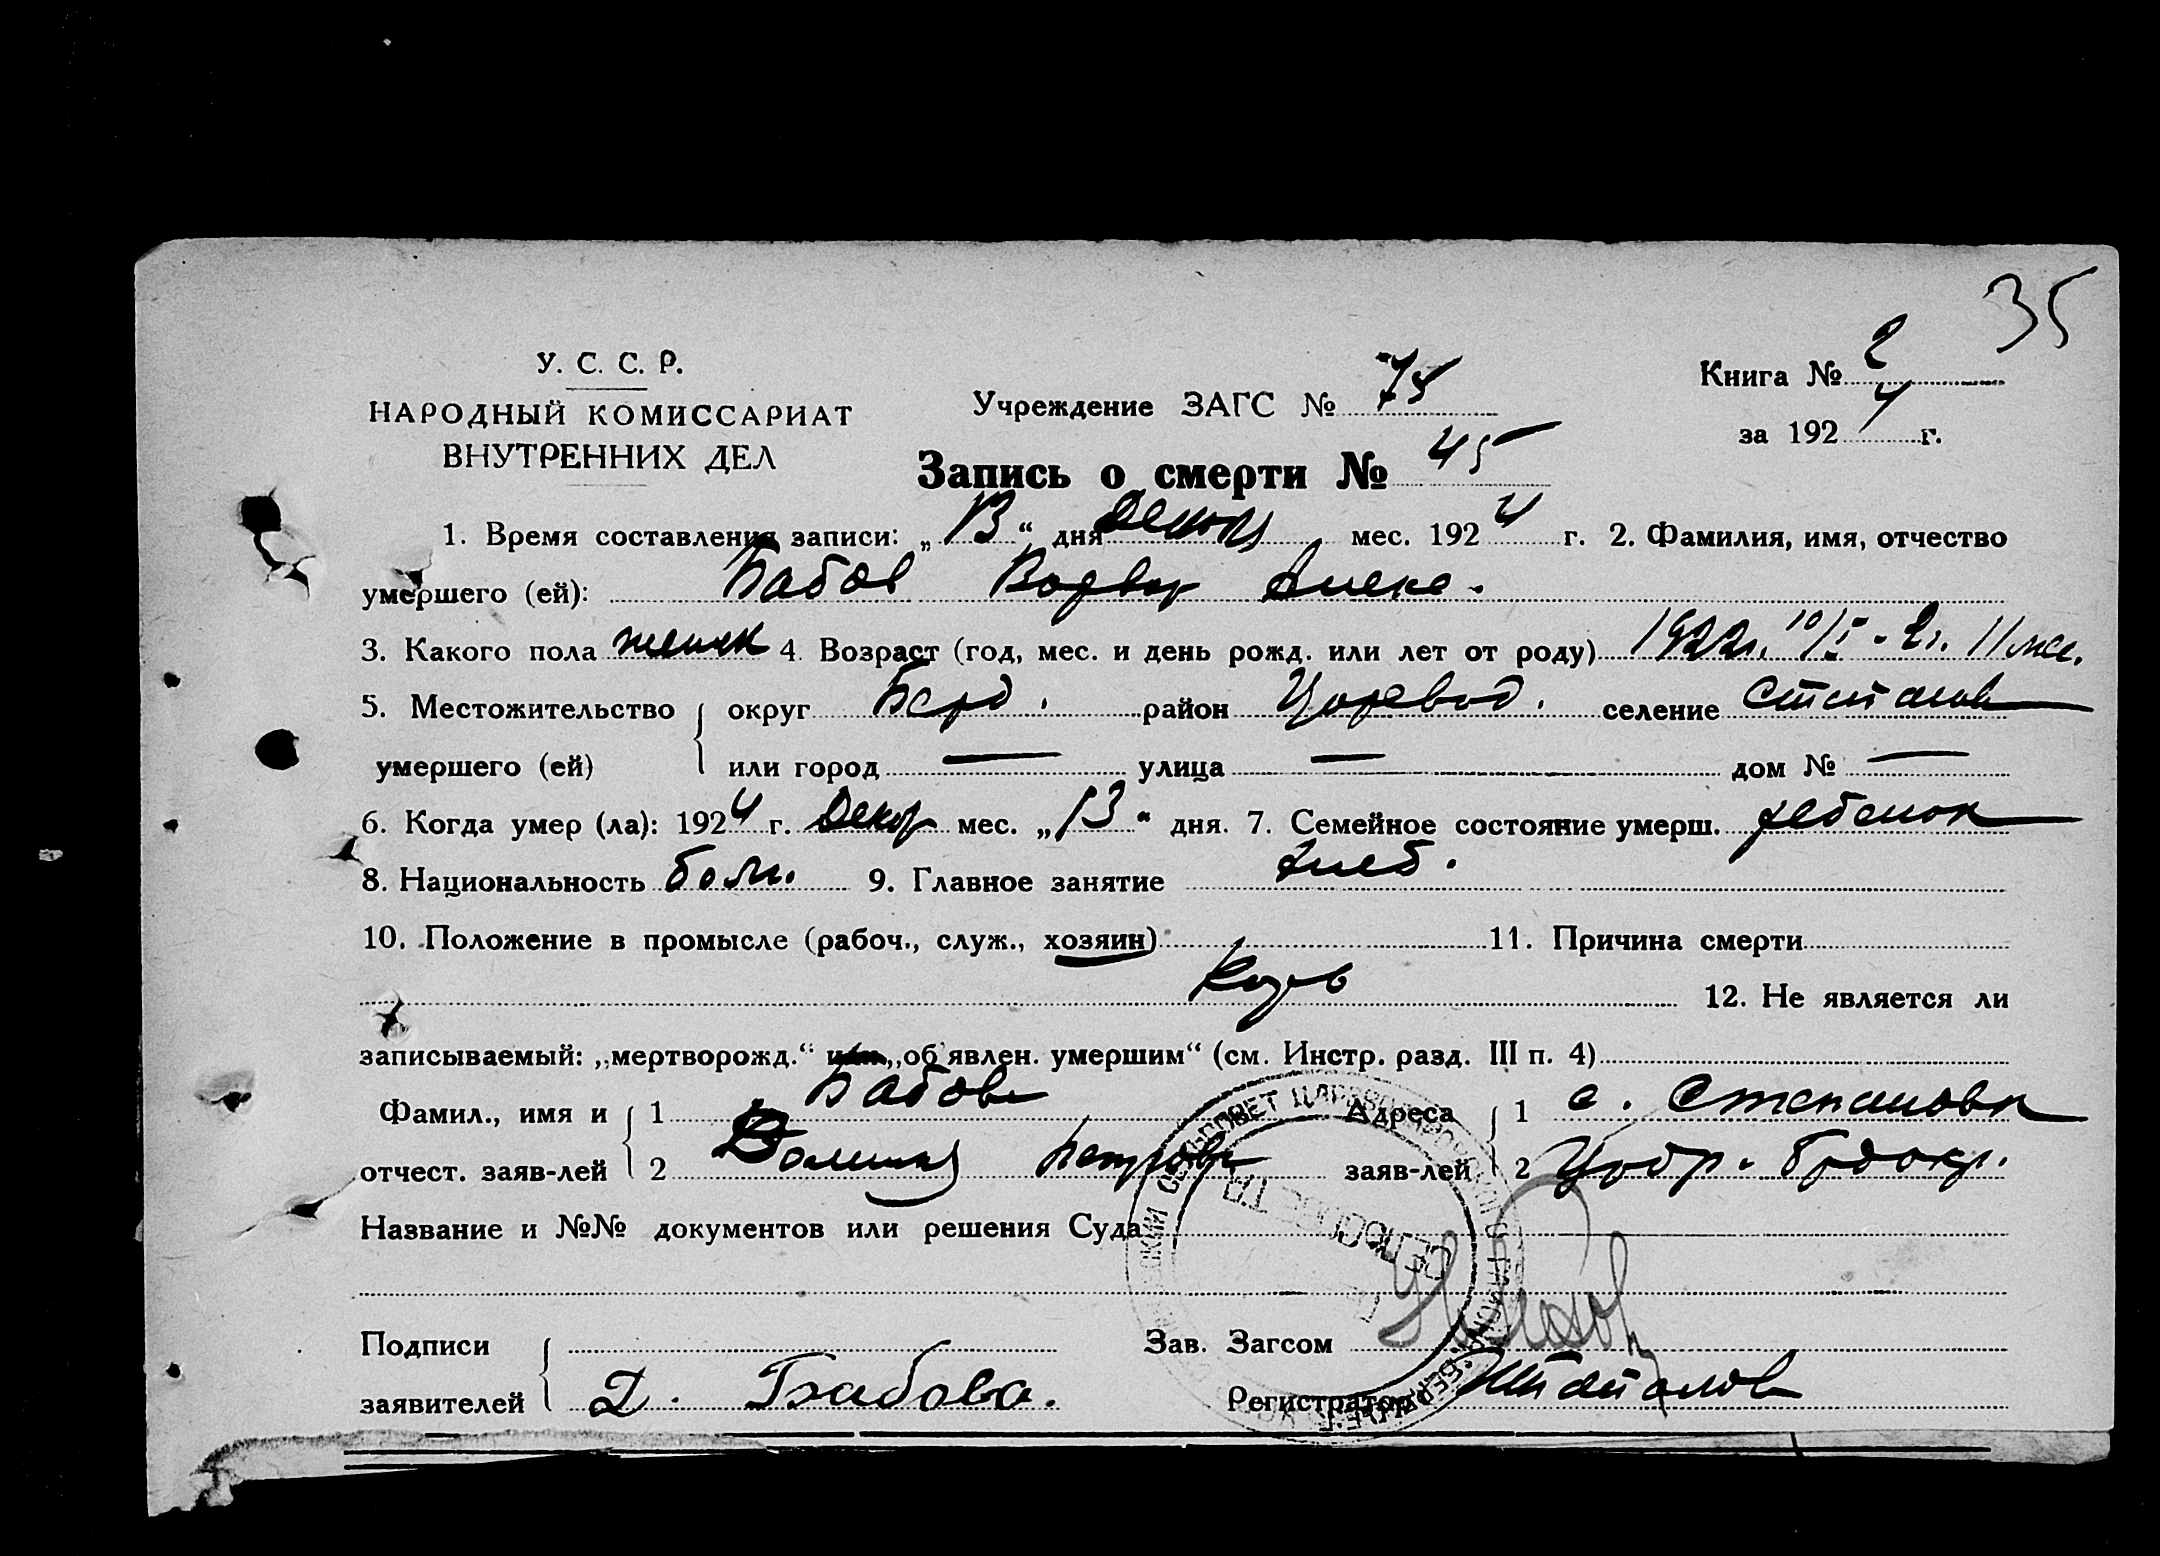 35
У. С. С. Р.
НАРОДНЫЙ КОМИССАРИАТ
ВНУТРЕННИХ ДЕЛ
Учреждение ЗАГС № 75
Книга № 2
за 1924 г.
Запись о смерти № 45
1. Время составления записи: „13“ дня мес. 1924 г. 2. Фамилия, имя, отчество
умершего (ей): Бабов Алекс.
3. Какого пола женск 4. Возраст (год, мес. и день рожд. или лет от роду) 1922г. 10/I - 2г. 11 мес.
5. Местожительство округ Берд. район Царевод. селение Степановк
умершего (ей) или город — улица — дом № —
6. Когда умер (ла): 1924 г. Декбр мес. „13“ дня. 7. Семейное состояние умерш. ребенок
8. Национальность болг. 9. Главное занятие хлеб.
10. Положение в промысле (рабоч., служ., хозяин) 11. Причина смерти
Корь 12. Не является ли
записываемый: „мертворожд.“ или „об'явлен. умершим“ (см. Инстр. разд. III п. 4)
Фамил., имя и 1 Бабова Адреса 1 с. Степановка
отчест. заяв-лей 2 Петрова заяв-лей 2
Название и №№ документов или решения Суда
Подписи Зав. Загсом
заявителей Д. Бабова. Регистратор